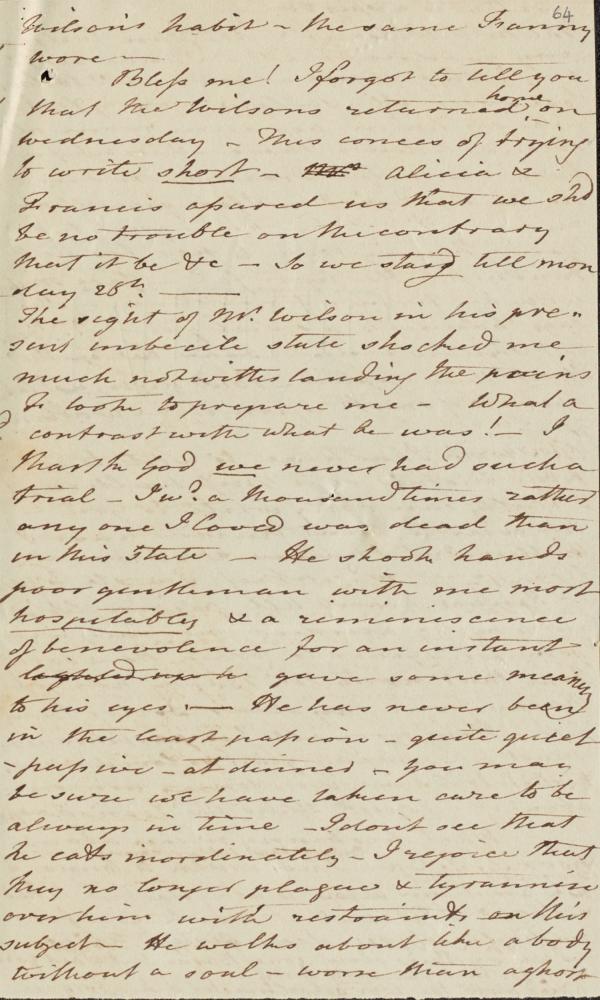 64
Wilson's habit - the same Fanny
wore -
Bless me! I forgot to tell you
that the Wilsons returned home on
wednesday - This comes of trying
to write short - Alicia &
Francis assured us that we shd
be no trouble on the contrary
that it be &c - So we stayd till mon
day 28th. ———
The sight of Mr. Wilson in his pre=
sent imbecile state shocked me
much notwithstanding the pains
F took to prepare me - What a
contrast with what he was! - I
thank God we never had such a
trial - I wd. a thousand times rather
any one I loved was dead than
in this state - He shook hands
poor gentleman with me most
hospitably & a reminiscence
of benevolence for an instant
lighted up h gave some meaning
to his eyes - He has never been
in the least passion - quite quiet
- passive - at dinner - you may
be sure we have taken care to be
always in time - I dont see that
he eats inordinately - I rejoice that
they no longer plague & tyrannise
over him with restraints on this
subject - He walks about like a body
without a soul - worse than a ghost